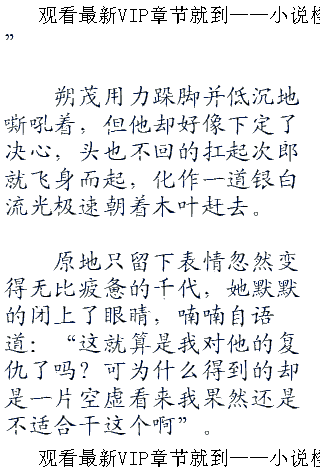 观看最新VIP章节就到——小说检
”
朔茂用力跺脚并低沉地
嘶吼着，但他却好像下定了
决心，头也不回的扛起次郎
就飞身而起，化作一道银白
流光极速朝着木叶赶去。
原地只留下表情忽然变
得无比疲惫的千代，她默默
的闭上了眼睛，喃喃自语
道：“这就算是我对他的复
仇了吗？可为什么得到的却
是一片空虚看来我果然还是
不适合干这个啊”。
观看最新VIP章节就到——小说检